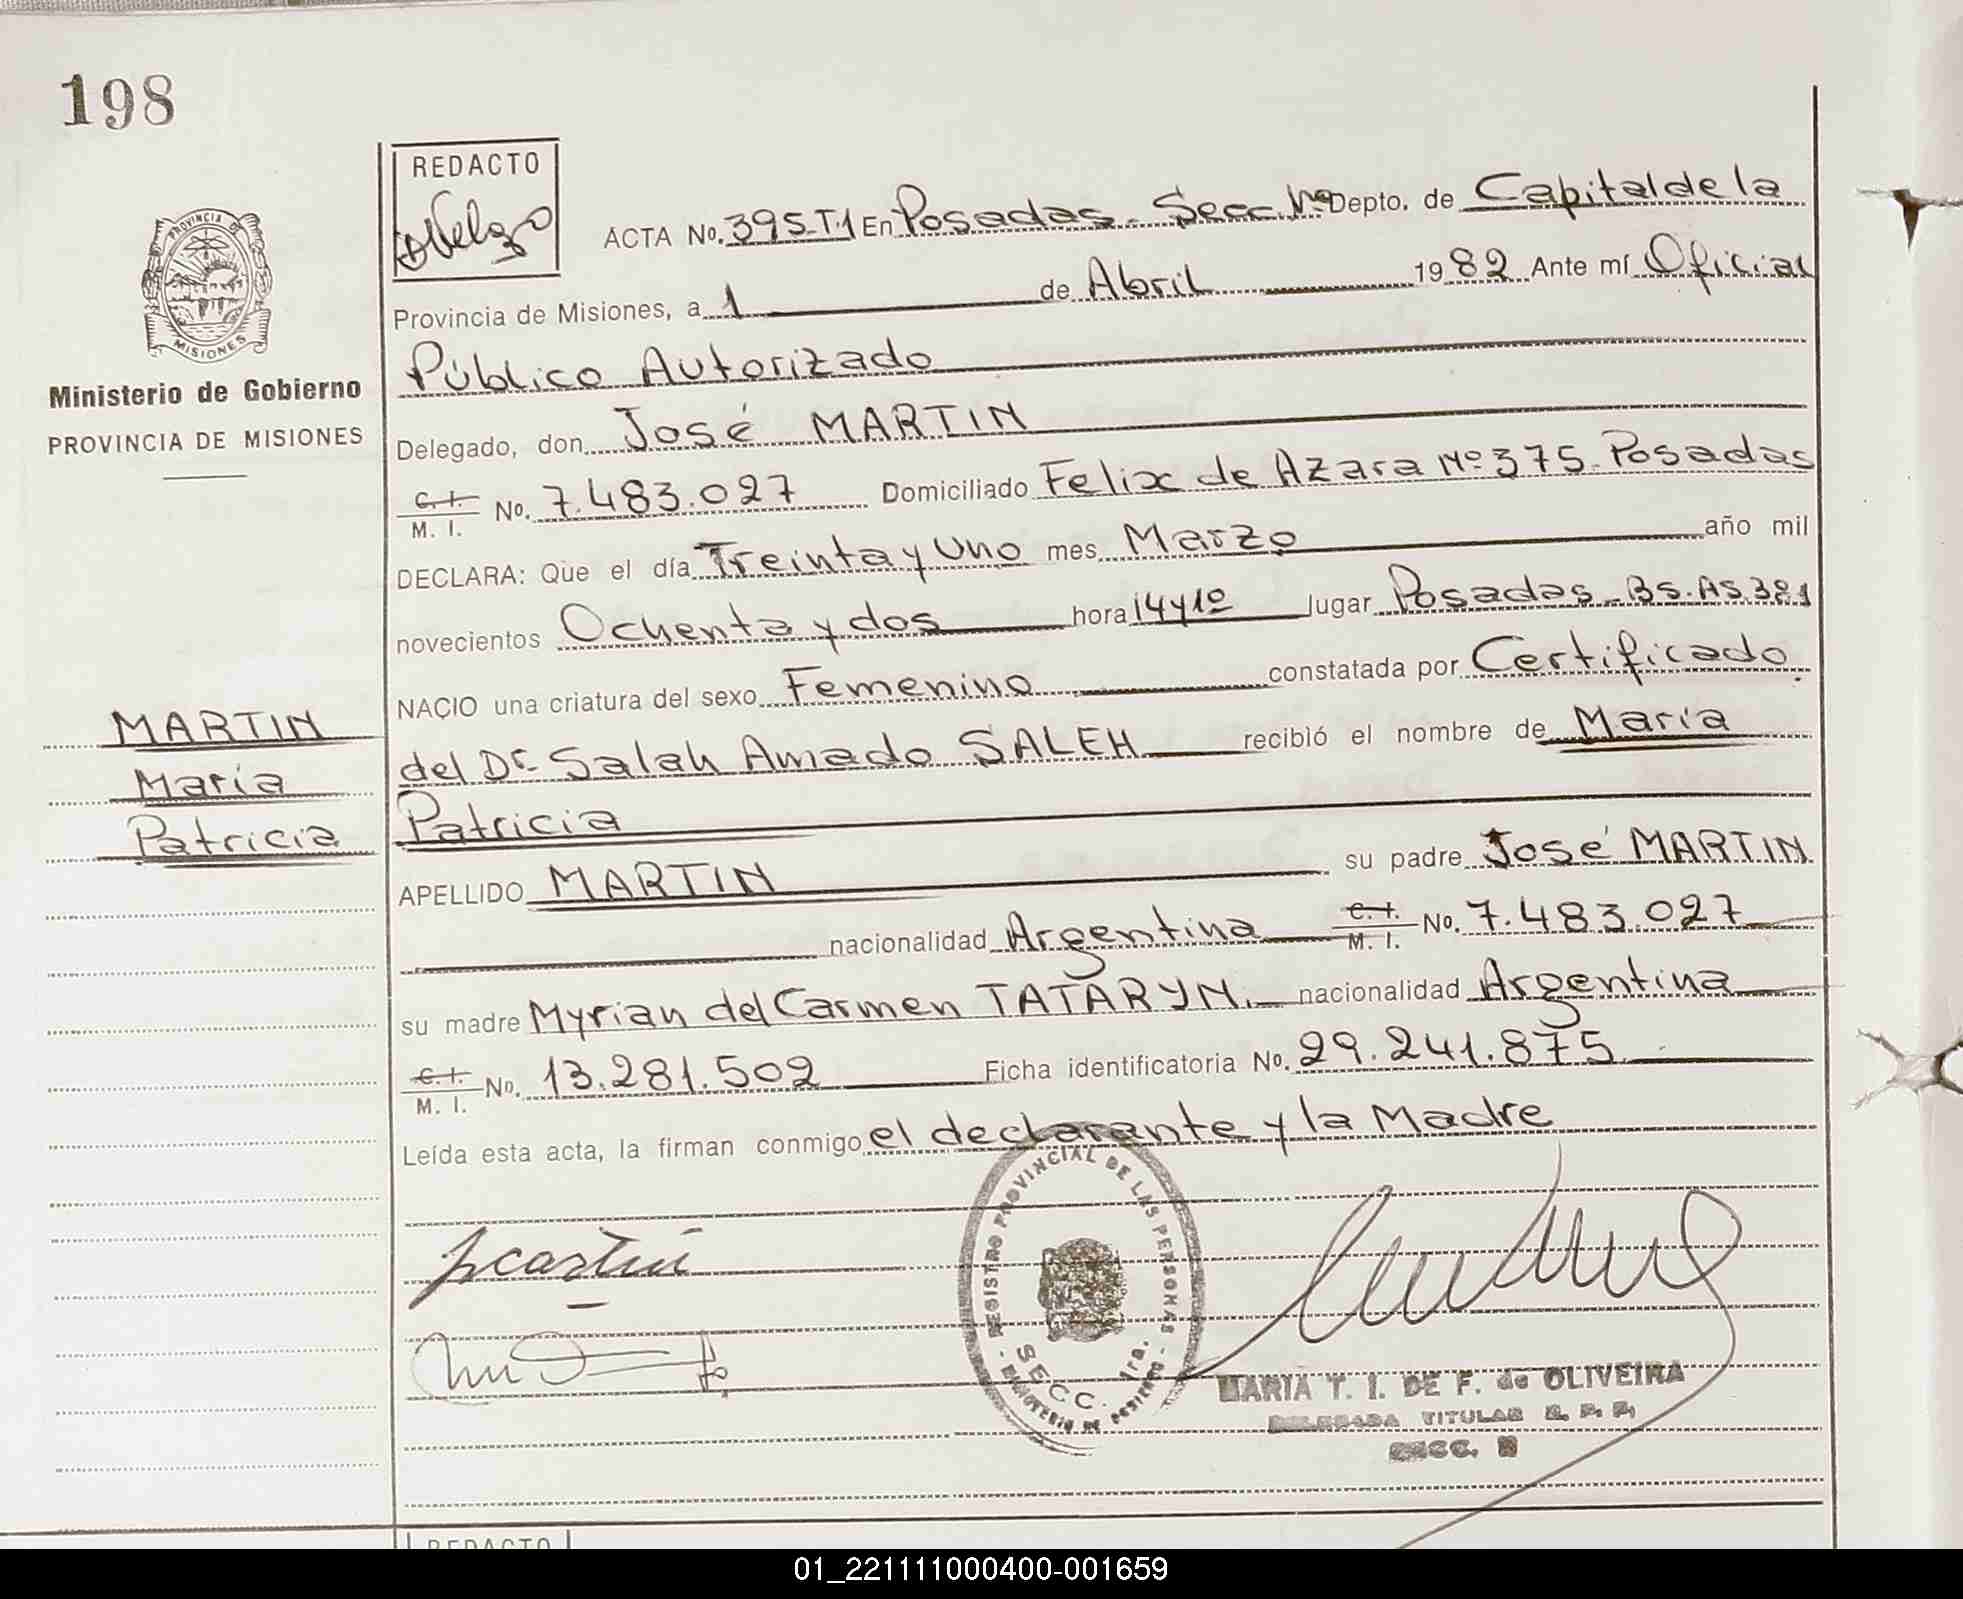 198
REDACTO
ACTA No. 395-T.1 En Posadas - Secc. 1ª Depto. de Capital de la
Provincia de Misiones, a 1 de Abril 1982 Ante mí Oficial
Público Autorizado
Delegado, don José MARTIN
C.I. M. I. No. 7.483.027 Domiciliado Felix de Azara Nº 375- Posadas
DECLARA: Que el día Treinta y Uno mes Marzo año mil
novecientos Ochenta y dos hora 14 y 10 lugar Posadas - Bs. As. 381
NACIO una criatura del sexo Femenino constatada por Certificado
del Dr. Salah Amado SALEH recibió el nombre de María
Patricia
APELLIDO MARTIN su padre José MARTIN
nacionalidad Argentina C.I. M. I. No. 7.483.027
su madre Myrian del Carmen TATARYN. nacionalidad Argentina
C.I. M. I. No. 13.281.502 Ficha identificatoria No. 29.241.875
Leída esta acta, la firman conmigo el declarante y la Madre
PROVINCIA DE MISIONES
Ministerio de Gobierno
PROVINCIA DE MISIONES
MARTIN
María
Patricia
REGISTRO PROVINCIAL DE LAS PERSONAS
SECC. 1ra.
MARIA T. I. DE F. de OLIVEIRA
DELEGADA TITULAR R. P. P.
SECC.
REDACTO
01_221111000400-001659